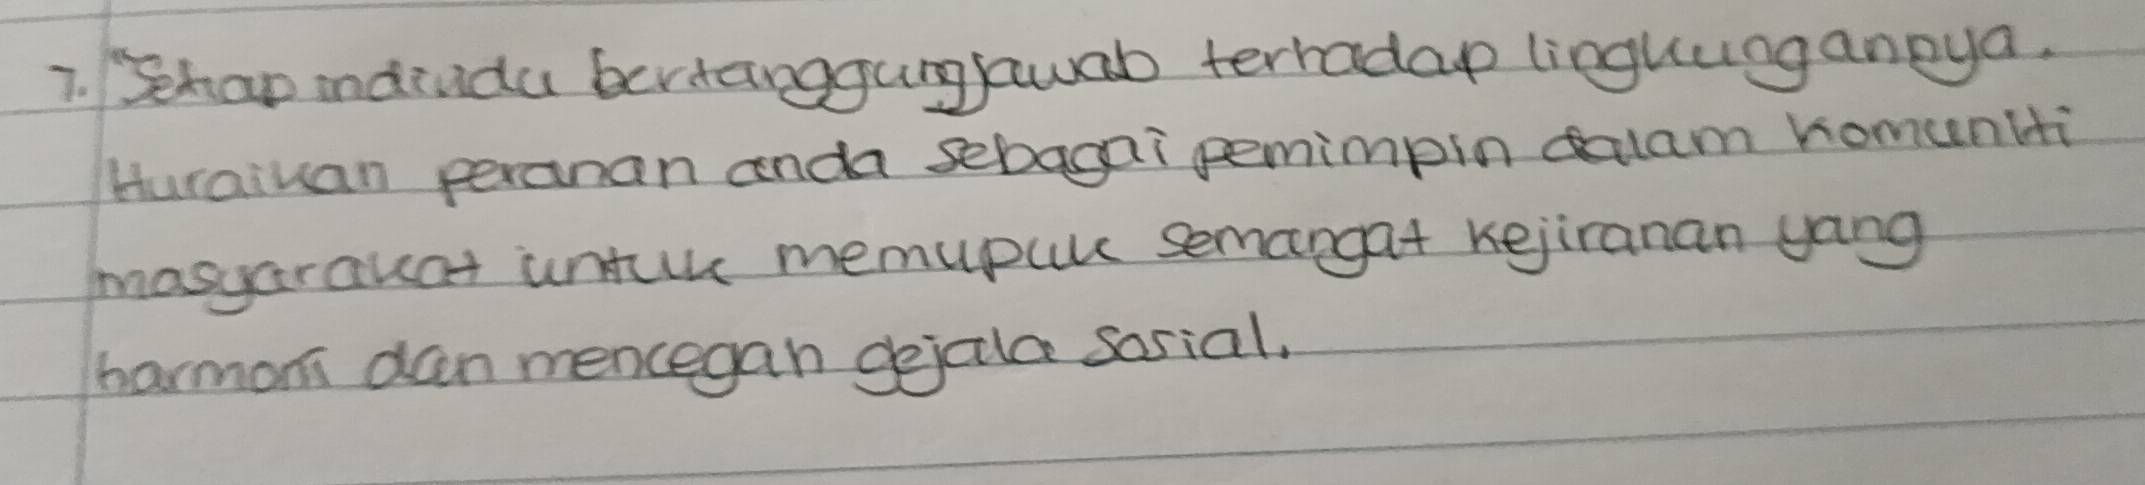 7. "Setiap individu bertanggungjawab terhadap lingkungannya.
Huraikan peranan anda sebagai pemimpin dalam komuniti
masyarakat untuk memupuk semangat kejiranan yang
harmoni dan mencegah gejala sosial.